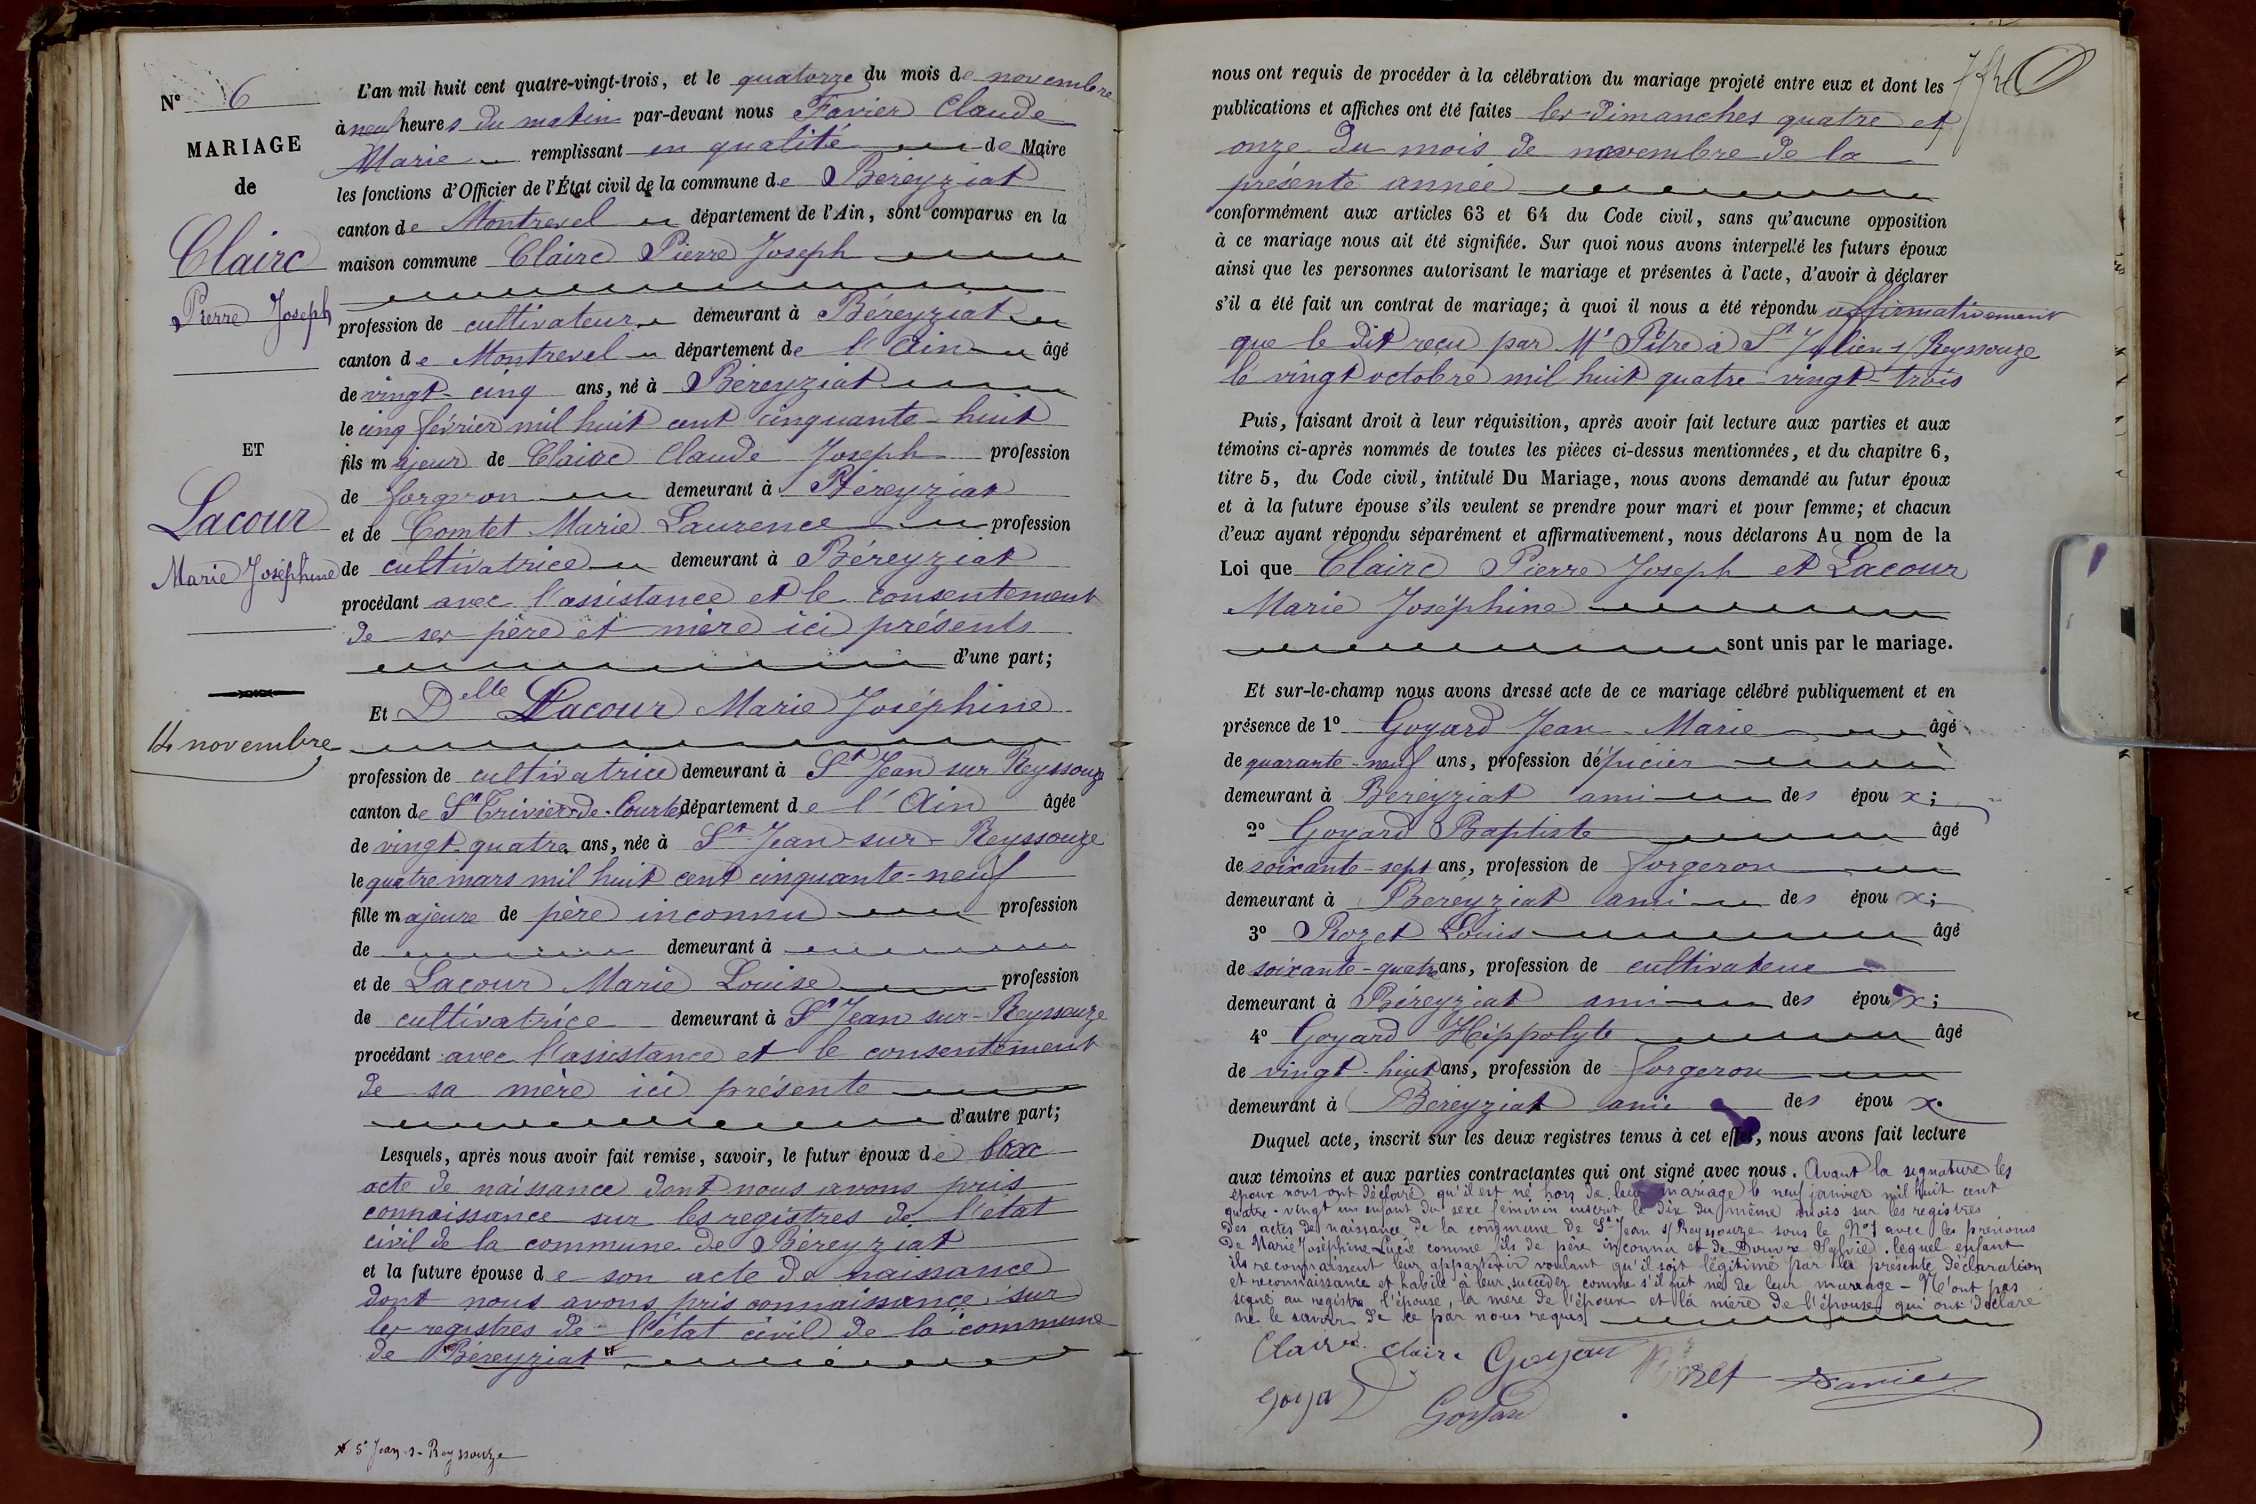 N° 6
MARIAGE
de
Claire
Pierre Joseph
ET
Lacour
Marie Joséphine
14 novembre
L'an mil huit cent quatre-vingt-trois, et le quatorze du mois de novembre
à neuf heures du matin par-devant nous Favier Claude
Marie remplissant en qualité de Maire
les fonctions d'Officier de l'État civil de la commune de Béreyziat
canton de Montrevel département de l'Ain, sont comparus en la
maison commune Claire Pierre Joseph
profession de cultivateur demeurant à Béreyziat
canton de Montrevel département de l'Ain âgé
de vingt-cinq ans, né à Béreyziat
le cinq février mil huit cent cinquante-huit
fils majeur de Claire Claude Joseph profession
de forgeron demeurant à Béreyziat
et de Comtet Marie Laurence profession
de cultivatrice demeurant à Béreyziat
procédant avec l'assistance et le consentement
de ses père et mère ici présents
d'une part;
Et Delle Lacour Marie Joséphine
profession de cultivatrice demeurant à St Jean sur Reyssouze
canton de St Trivier-de-Courtes département de l'Ain âgée
de vingt-quatre ans, née à St Jean-sur-Reyssouze
le quatre mars mil huit cent cinquante-neuf
fille majeure de père inconnu profession
de demeurant à
et de Lacour Marie Louise profession
de cultivatrice demeurant à St Jean sur-Reyssouze
procédant avec l'assistance et le consentement
de sa mère ici présente
d'autre part;
Lesquels, après nous avoir fait remise, savoir, le futur époux de
acte de naissance dont nous avons pris
connaissance sur les registres de l'état
civil de la commune de Béreyziat
et la future épouse de son acte de naissance
dont nous avons pris connaissance sur
les registres de l'état civil de la commune
de "Béreyziat"
x St Jean-s-Reyssouze
nous ont requis de procéder à la célébration du mariage projeté entre eux et dont les
publications et affiches ont été faites les dimanches quatre et
onze du mois de novembre de la
présente année
conformément aux articles 63 et 64 du Code civil, sans qu'aucune opposition
à ce mariage nous ait été signifiée. Sur quoi nous avons interpellé les futurs époux
ainsi que les personnes autorisant le mariage et présentes à l'acte, d'avoir à déclarer
s'il a été fait un contrat de mariage; à quoi il nous a été répondu affirmativement
que le dit reçu par Me Pitre à St Julien s/Reyssouze
le vingt octobre mil huit quatre-vingt-trois
Puis, faisant droit à leur réquisition, après avoir fait lecture aux parties et aux
témoins ci-après nommés de toutes les pièces ci-dessus mentionnées, et du chapitre 6,
titre 5, du Code civil, intitulé Du Mariage, nous avons demandé au futur époux
et à la future épouse s'ils veulent se prendre pour mari et pour femme; et chacun
d'eux ayant répondu séparément et affirmativement, nous déclarons Au nom de la
Loi que Claire Pierre Joseph et Lacour
Marie Joséphine
sont unis par le mariage.
Et sur-le-champ nous avons dressé acte de ce mariage célébré publiquement et en
présence de 1° Goyard Jean-Marie âgé
de quarante-neuf ans, profession d'épicier
demeurant à Béreyziat ami des époux;
2° Goyard Baptiste âgé
de soixante-sept ans, profession de forgeron
demeurant à Béreyziat ami des époux;
3° Rozet Louis âgé
de soixante-quatre ans, profession de cultivateur
demeurant à Béreyziat ami des époux;
4° Goyard Hippolyte âgé
de vingt-huit ans, profession de forgeron
demeurant à Béreyziat ami des époux.
Duquel acte, inscrit sur les deux registres tenus à cet effet, nous avons fait lecture
aux témoins et aux parties contractantes qui ont signé avec nous. Avant la signature les
époux nous ont déclaré qu'il est né hors de leur mariage le neuf janvier mil huit cent
quatre-vingt un enfant du sexe féminin inscrit le dix du même mois sur les registres
des actes de naissance de la commune de St Jean s/Reyssouze sous le N° 1 avec les prénoms
de Marie Joséphine Lucie comme fils de père inconnu et de . lequel enfant
ils reconnaissent leur appartenir voulant qu'il soit légitimé par la présente déclaration
et reconnaissance et habile à leur succéder comme s'il fut né de leur mariage - N'ont pas
signé au registre l'épouse, la mère de l'époux et la mère de l'épouse qui ont déclaré
ne le savoir de ce par nous requis
Claire Claire Goyard Rozet Favier
Goyard Goyard